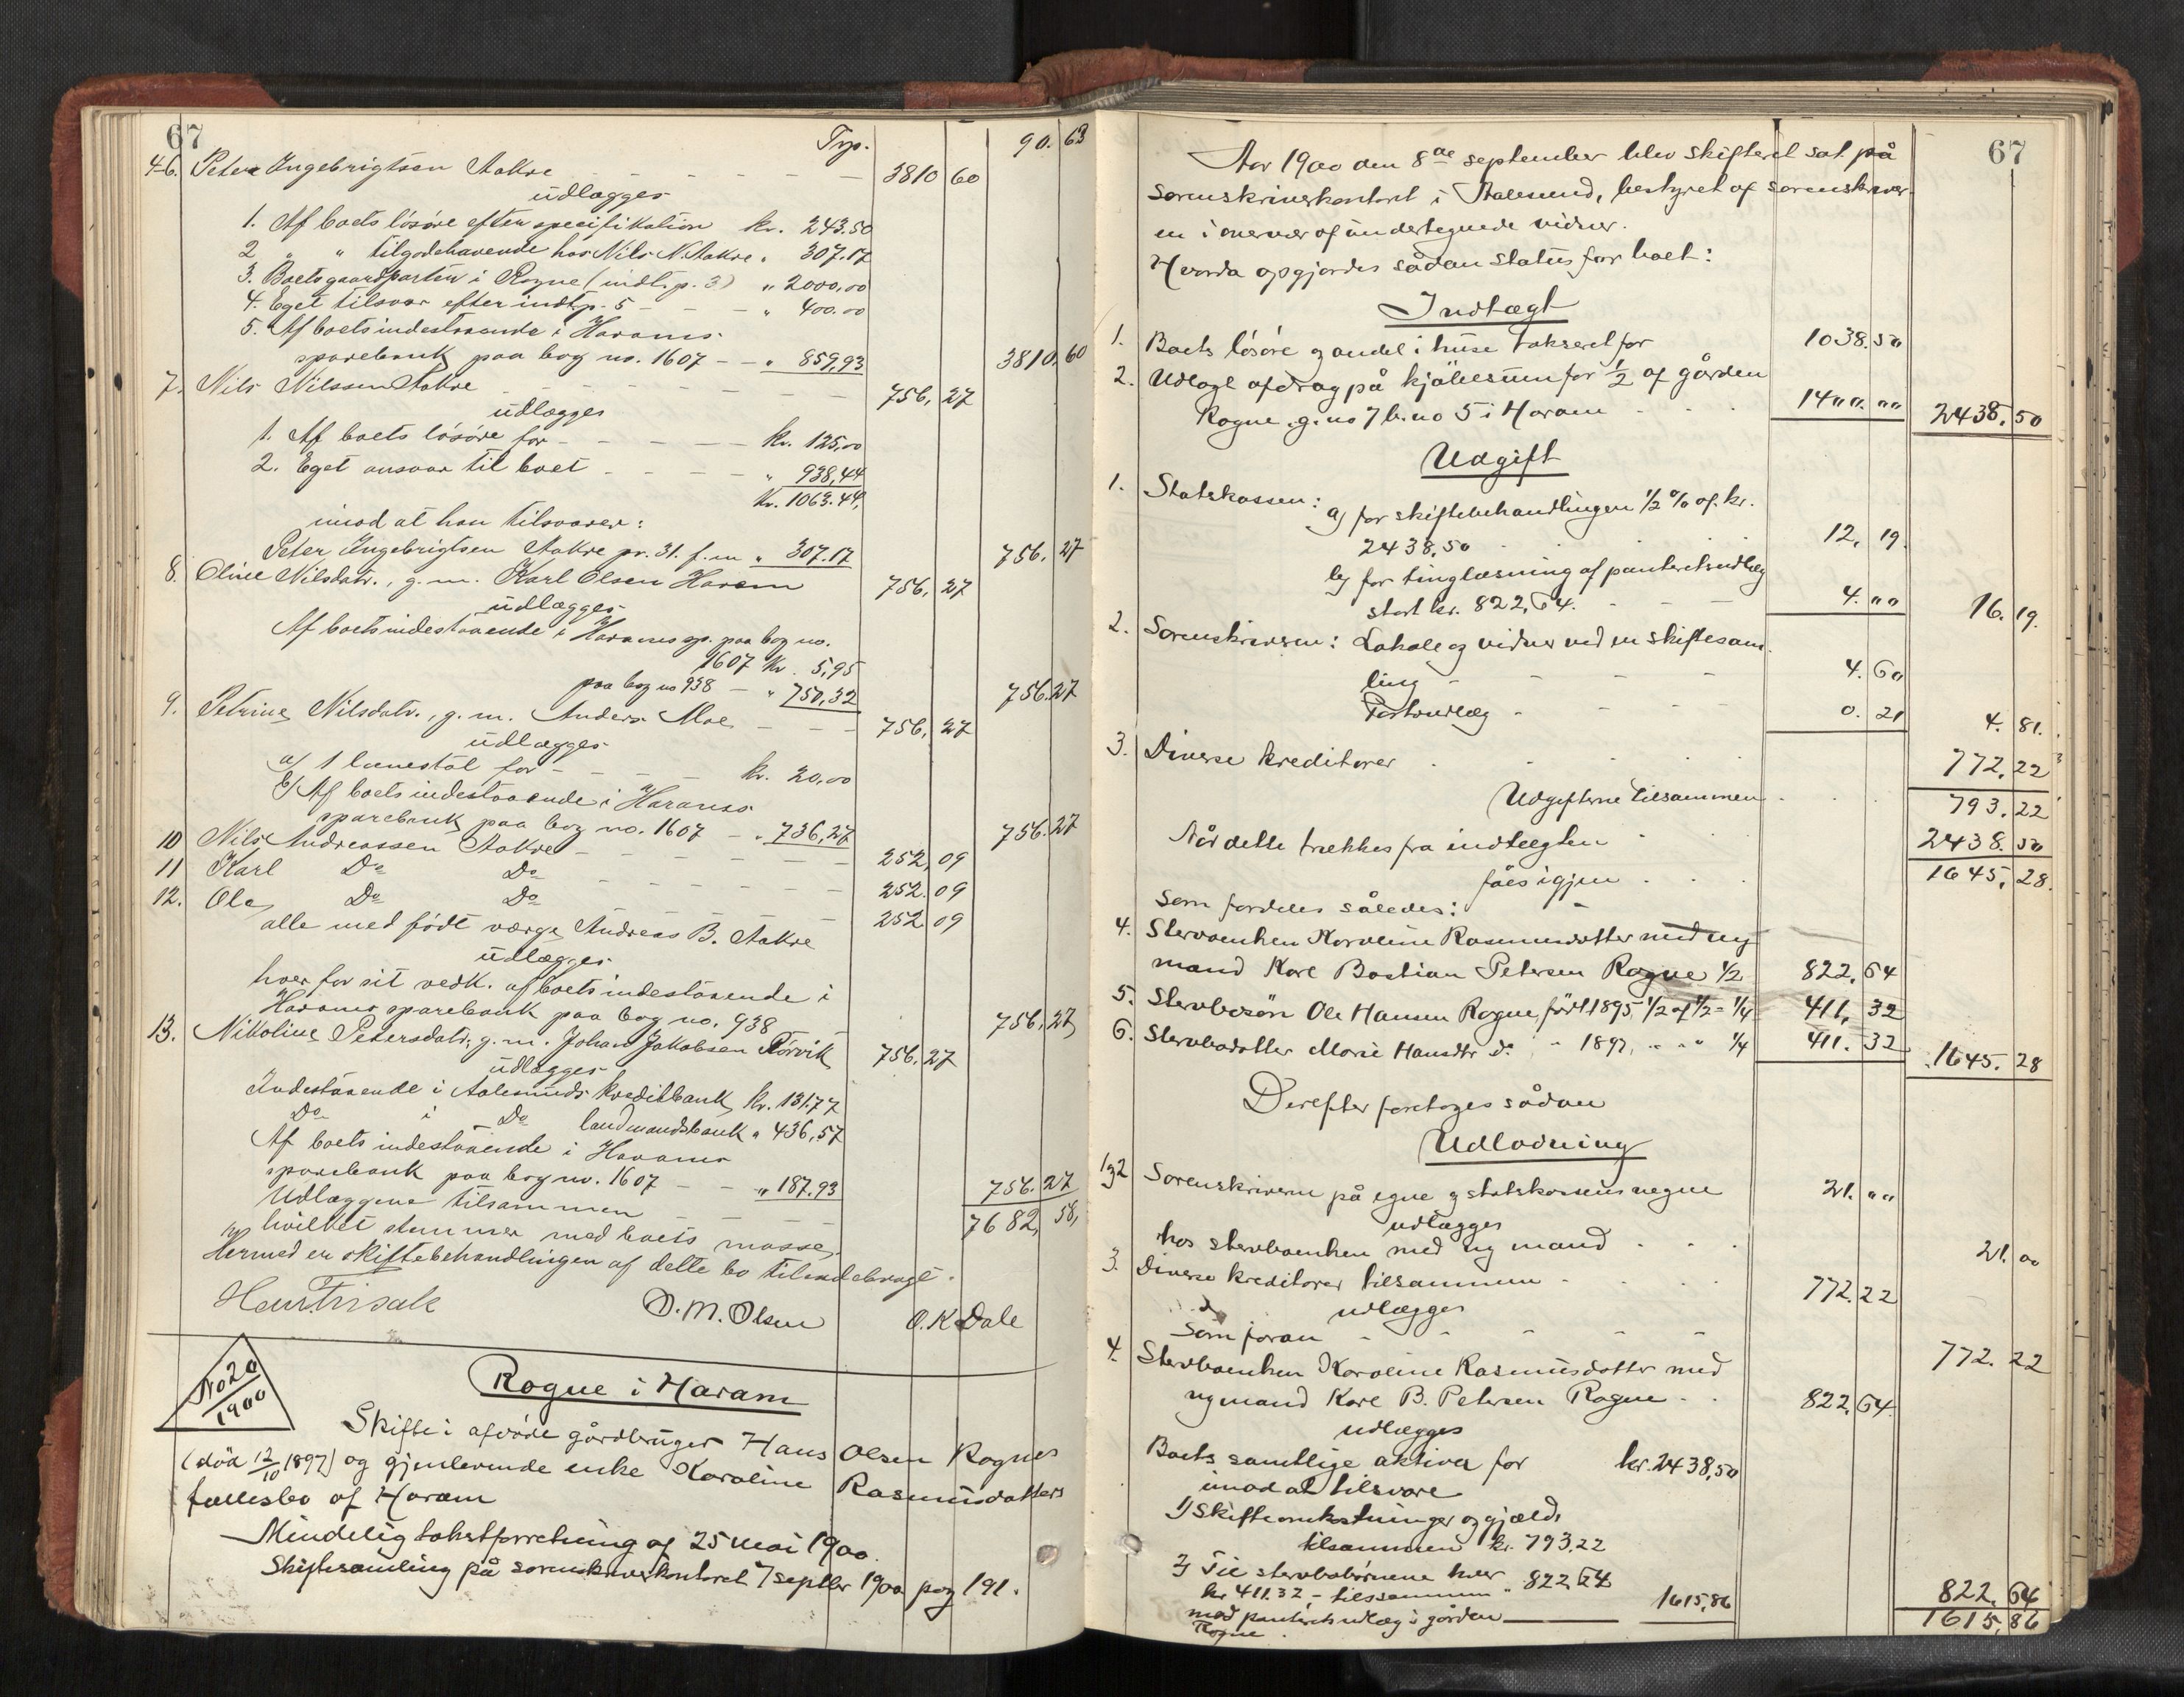 67
Trp. 90. 63
4-6. Peter Ingebrigtsen Aakre - - - - - 3810 60
udlægges
1. Af boets lösöre efter specifikation kr. 243.50
2 " " tilgodehavende hos Nils N. Aakre " 307.17
3. Boets gaardparten i Rogne (indt. p. 3) " 2000,00
4. Eget tilsvar efter indt. p. 5 - - - " 400.00
5. Af boets indestaaende i Harams
sparebank paa bog no. 1607 - - " 859,93 3810,60
7. Nils Nilssen Aakre - - - - - 756, 27
udlægges
1. Af boets lösöre for - - - - kr. 125,00
2. Eget ansvar til boet - - - - " 938,44
Kr. 1063.44,
imod at han tilsvarer:
Peter Ingebrigtsen Aakre pr. 31. f. m " 307.17 756. 27
8. Oline Nilsdatr., g. m. Karl Olsen Haram 756, 27
udlægges
Af boets indestaaende i Harams sp. paa bog no.
1607 Kr. 5,95
paa bog no 938 - " 750,32 756.27
9. Petrine Nilsdatr., g. m. Anders Moe - - - 756, 27
udlægges
a) 1 lænestol for - - - - kr. 20,00
b) Af boets indestaaende i Harams
sparebank paa bog no. 1607 - " 736,27 756.27
10 Nils Andreassen Aakre - - - - - 252,09
11 Karl Do Do - - - - - 252.09
12. Ole Do Do - - - - - 252 09
alle med födt værge Andreas B. Aakre
udlægges
hver for sit vedk. af boets indestaaende i
Harams sparebank paa bog no. 938 756,27
13. Nikoline Petersdatr, g. m. Johan Jakobsen Rörvik 756,27
udlægges
Indestaaende i Aalesunds kreditbank kr. 131.77
Do i Do landmandsbank " 436,57
Af boets indestaaende i Harams
sparebank paa bog no. 1607 - - " 187.93 756.27
Udlæggene tilsammen - - - - 7682, 58,
hvilket stemmer med boets masse.
Hermed er skiftebehandlingen af dette bo tilendebragt.
D. M. Olsen O. K. Dale
No 20
1900
Rogne i Haram
Skifte i afdöde gårdbruger Hans Olsen Rognes
(död 12/10 1897) og gjenlevende enke Karoline Rasmusdatters
fællesbo af Haram
Mindelig takstforretning af 25 mai 1900.
Skiftesamling på sorenskriverkontoret 7 septbr 1900 pag 191.
67
Aar 1900 den 8de september blev skifteret sat på
sorenskriverkontoret i Aalesund, bestyret af sorenskriver-
en i overvær af undertegnede vidner.
Hvorda opgjordes sådan status for boet:
Indtægt
1. Boets lösöre og andel i huse takseret for 1038.50
2. Udlagt afdrag på kjöbesum for 1/2 af gården
Rogne. g. no 7 b. no 5 i Haram - - - 1400.00 2438.50
Udgift
1. Statskassen: a) for skiftebehandlingen 1/2 % af kr.
2438,50 - - - 12, 19.
b) for tinglæsning af panteretsudlæg
stort kr. 822,64. - - - 4.00 16. 19.
2. Sorenskriveren: Lokale og vidner ved en skiftesam-
ling - - - - 4. 60
Portoudlæg - - - - 0. 21 4. 81.
3. Diverse kreditorer - - - - 772.22
Udgifterne tilsammen - - - 793.22
Når dette trækkes fra indtægten - - 2438.50
fåes igjen - - - 1645, 28.
som fordeles således:
4. Stervboenken Karoline Rasmusdatter med ny
mand Karl Bastian Petersen Rogne 1/2 822, 64
5. Stervbosön Ole Hansen Rogne, född 1895, 1/2 af 1/2 = 1/4 411, 32
6. Stervbodatter Marie Hansdtr do. " 1897, " " " 1/4 411. 32 1645. 28
Derefter foretoges sådan
Udlodning
1 og 2 Sorenskriveren på egne og statskassens vegne 21. 00
udlægges
hos stervboenken med ny mand - - - 21. 00
3. Diverse kreditorer tilsammen - - - 772.22
udlægges
som foran - - - - - 772. 22
4. Stervboenken Karoline Rasmusdatter med
ny mand Karl B. Petersen Rogne - - 822,64.
udlægges
Boets samtlige aktiva for kr. 2438,50
imod at tilsvare
1) Skifteomkostninger og gjæld,
tilsammen kr. 793.22
2) Til stervbobörnene hver
kr 411.32, - tilsammen " 822,64 1615,86 822. 64
med panteretsudlæg i gården 1615,86
Rogne.